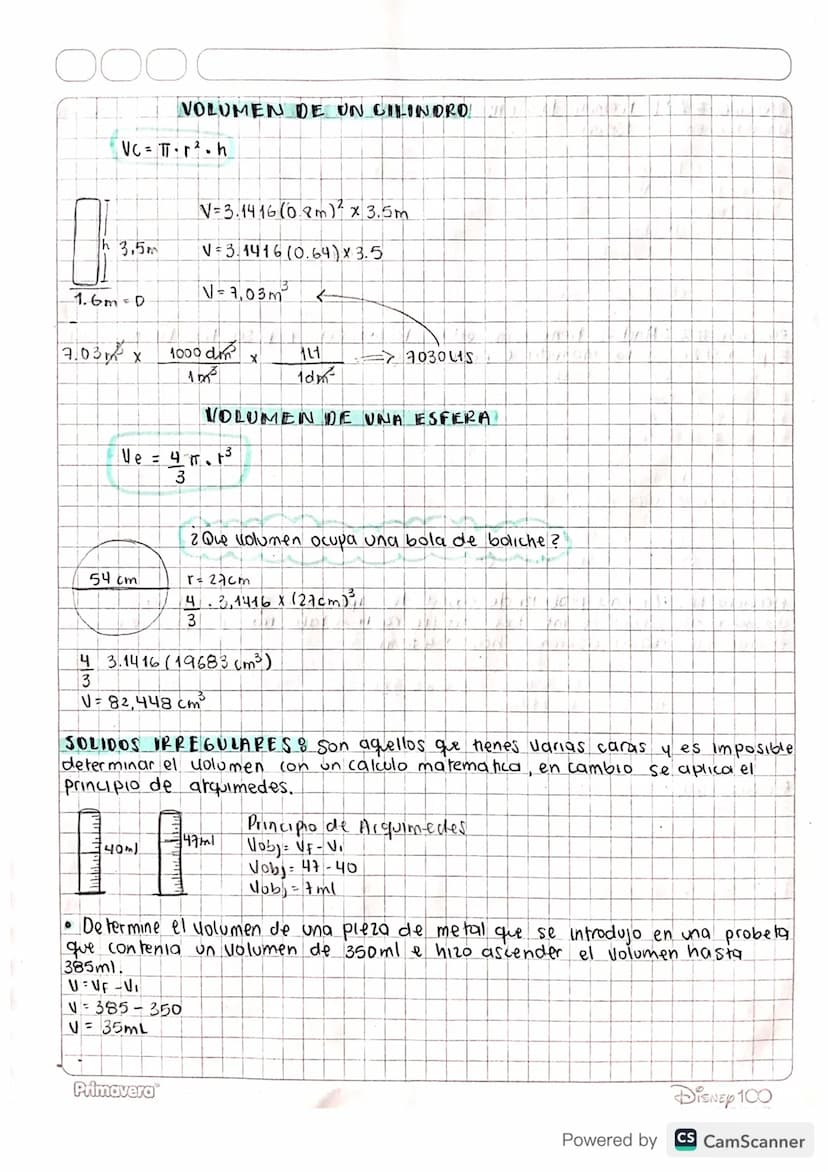 VOLUMEN DE UN CILINDRO
Vc = π · r² · h
V=3.1416(0.8m)² x 3.5m
h 3,5m
V=3.1416(0.64)x 3.5
V=7,03m³
1.6m = D
7.03m³ x 1000 dm³ / 1m³ x 1Lt / 1dm³ => 7030Lts
VOLUMEN DE UNA ESFERA
Ve = 4/3 π · r³
¿Que volumen ocupa una bola de boliche?
54 cm
r= 27cm
4/3 · 3,1416 x (27cm)³
4/3 3.1416 (19683 cm³)
V= 82,448 cm³
SOLIDOS IRREGULARES: Son aquellos que tienes varias caras y es imposible
determinar el volumen con un calculo matematico, en cambio se aplica el
principio de arquimedes.
40ml
47ml
Principio de Arquimedes
Vobj= Vf-Vi
Vobj= 47-40
Vobj= 7ml
• Determine el volumen de una pieza de metal que se introdujo en una probeta
que contenia un volumen de 350ml e hizo ascender el volumen hasta
385ml.
V=Vf-Vi
V= 385-350
V= 35mL
Primavera
Disney100
Powered by CS CamScanner